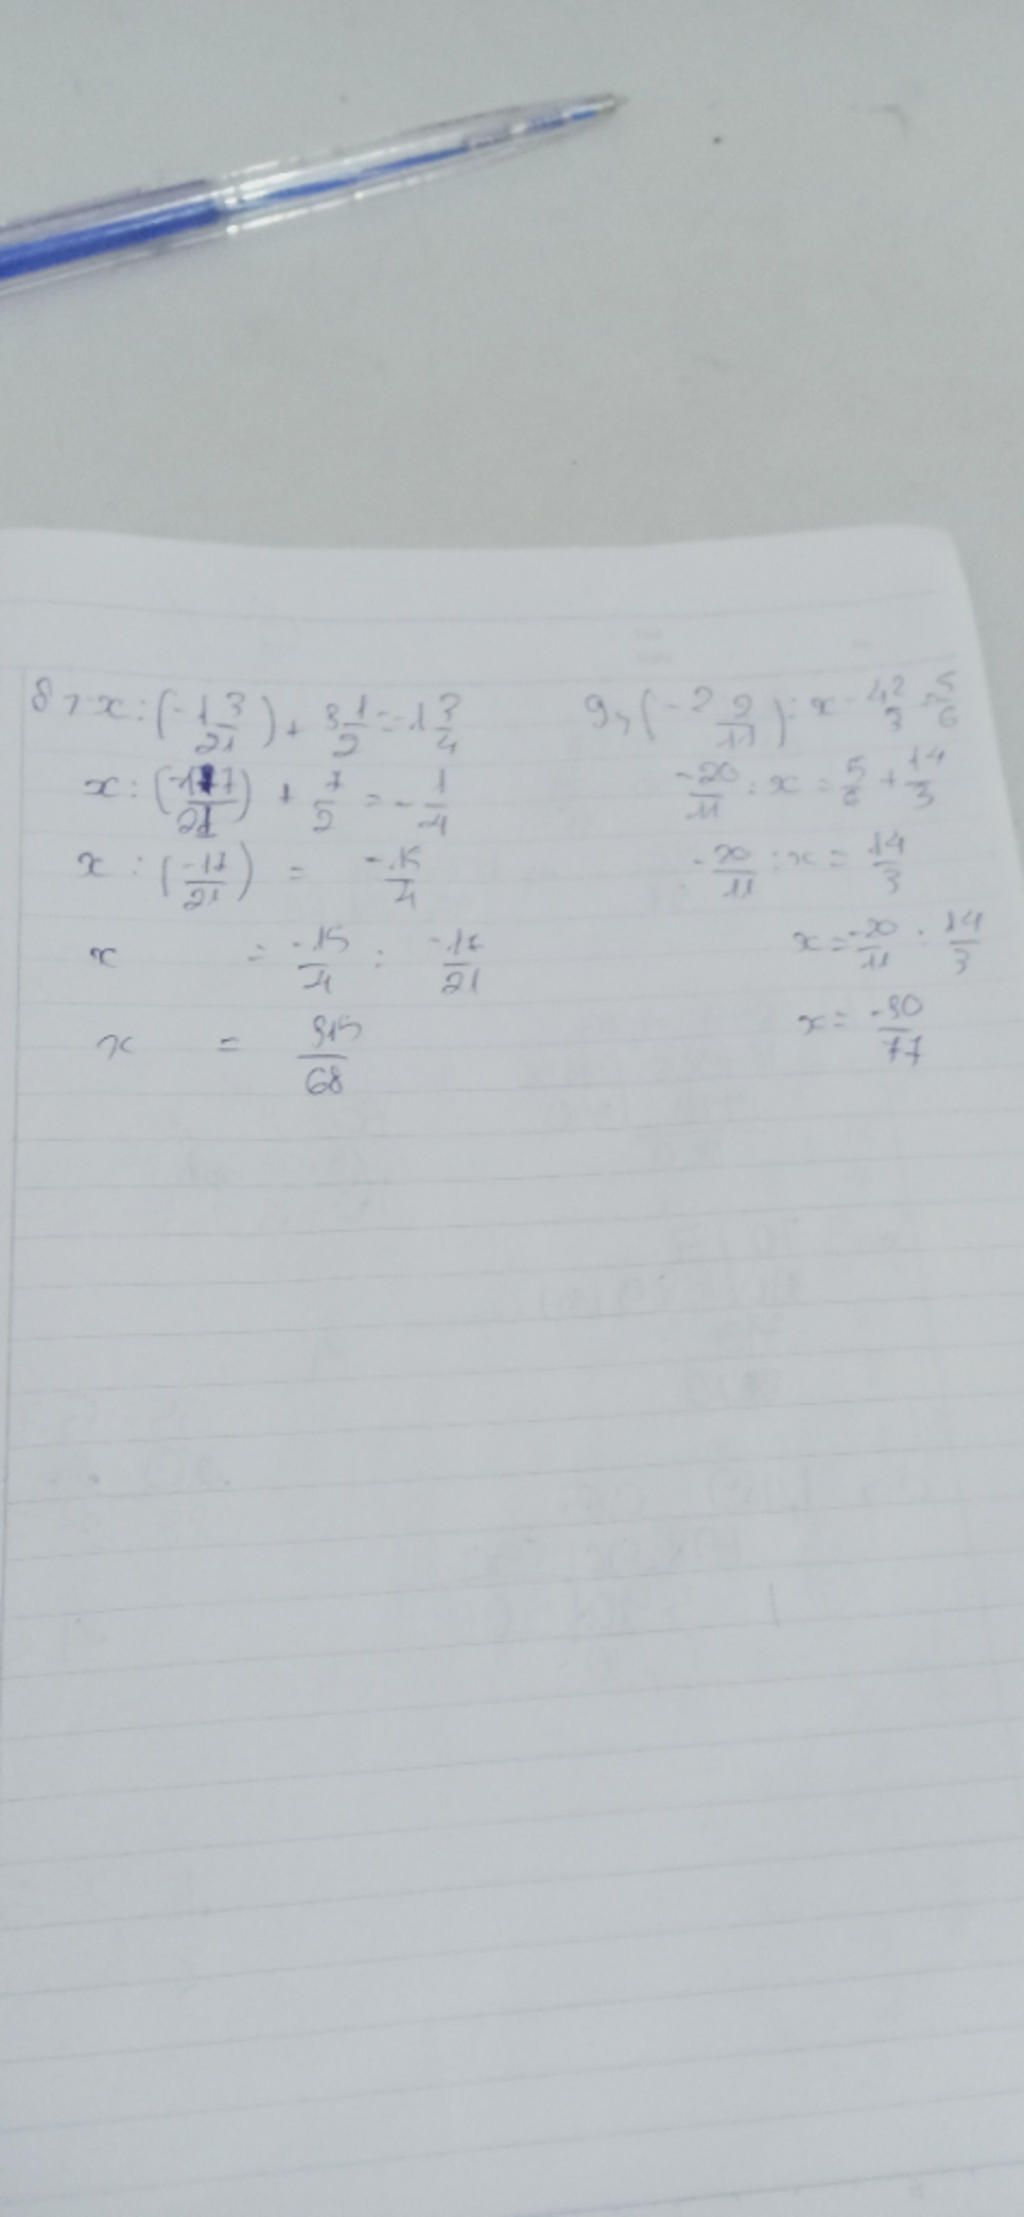 8, x : (-1 3/21) + 3 1/2 = -1 3/4
x : (-17/21) + 7/2 = -1/4
x : (-17/21) = -15/4
x = -15/4 : -17/21
x = 315/68
9, (-2 2/11) : x - 4 2/3 = 5/6
-20/11 : x = 5/6 + 14/3
-20/11 : x = 14/3
x = -20/11 : 14/3
x = -30/77